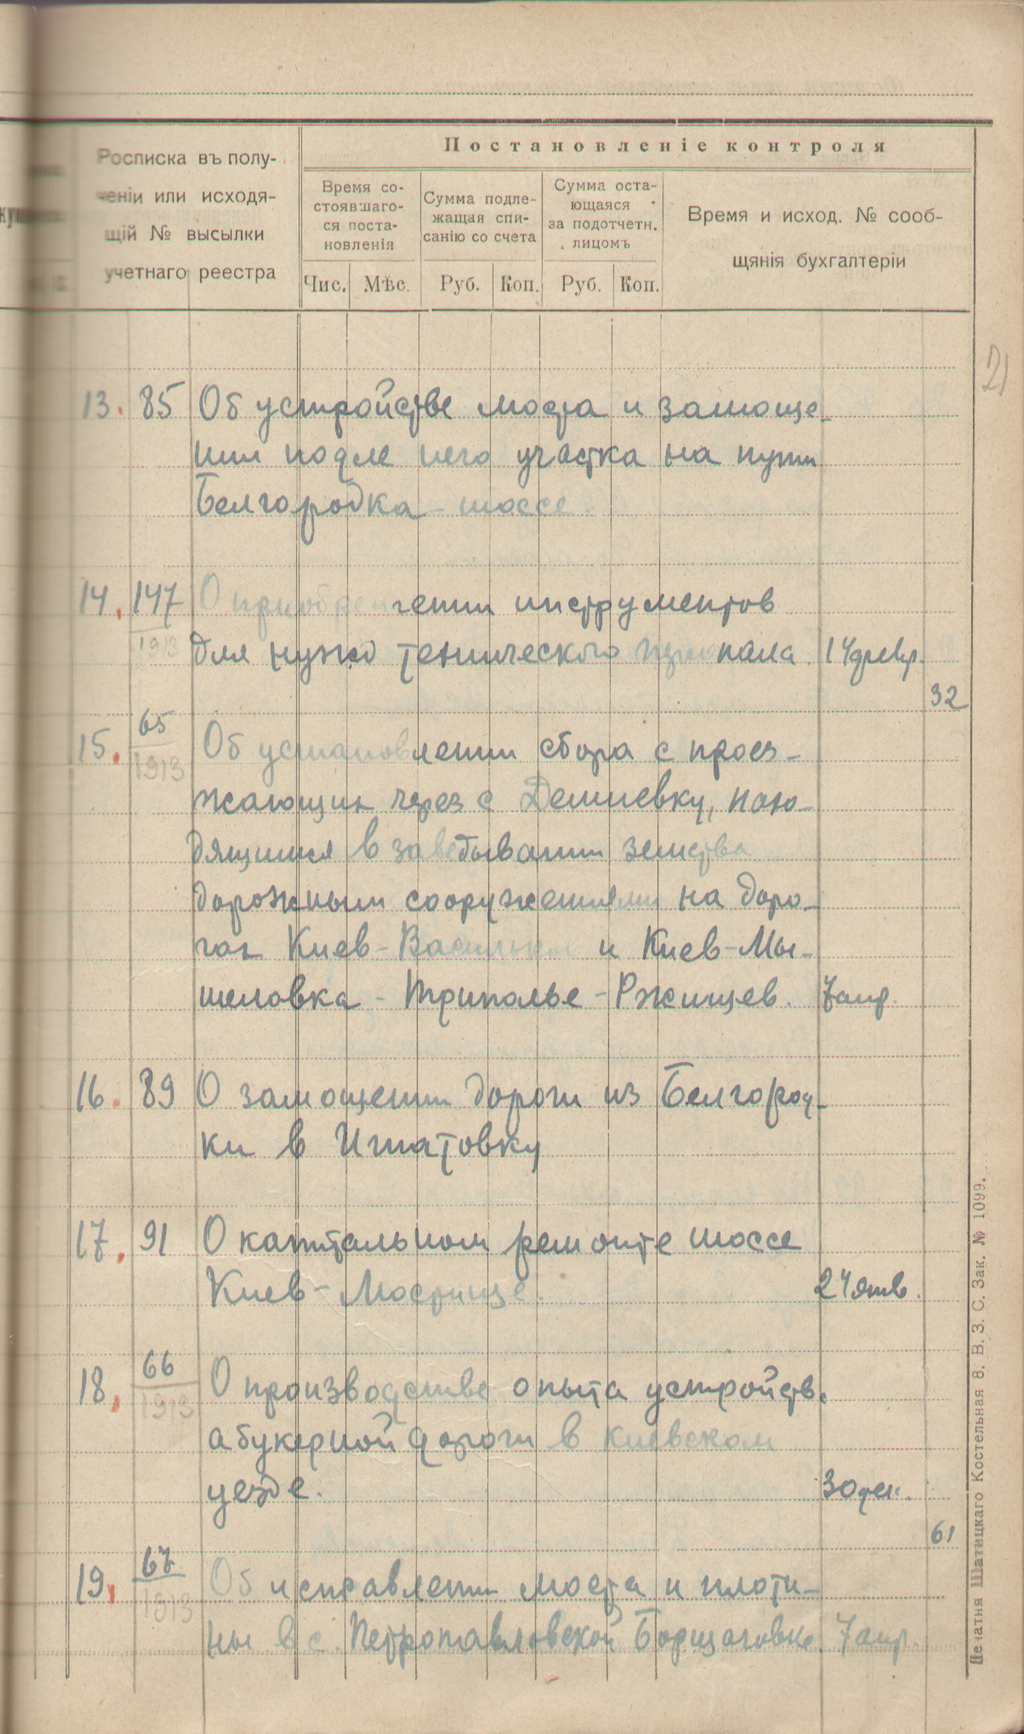 Росписка въ полу-
ченіи или исходя-
щій № высылки
учетнаго реестра
Постановленіе контроля
Время со-
стоявшаго-
ся поста-
новленія
Сумма подле-
жащая спи-
санію со счета
Сумма оста-
ющаяся
за подотчетн.
лицомъ
Время и исход. № сооб-
щянія бухгалтеріи
Чис. Мѣс. Руб. Коп. Руб. Коп.
21
13. 85 Об устройстве моста и замоще-
нии подле него участка на пути
Белгородка - шоссе.
14. 147 О приобретении инструментов
1913 для нужд технического персонала. 14 февр.
32
15. 65 Об установлении сбора с проез-
1913
жающих через с Демиевку, нахо-
дящимися в заведывании земства
дорожными сооружениями на доро-
гах Киев-Васильков и Киев-Мы-
шеловка - Триполье - Ржищев. 7 апр.
16. 89 О замощении дороги из Белгород-
ки в Игнатовку
17. 91 О капитальном ремонте шоссе
Киев - Мостище. 24 янв.
18. 66 О производстве опыта устройств.
1913
абукерной дороги в Киевском
уезде. 30 дек.
61
19. 67 Об исправлении моста и плоти-
1913
ны в с. Петропавловской Борщаговке. 7 апр.
Печатня Шатицкаго Костельная 8. В. З. С. Зак. № 1099.